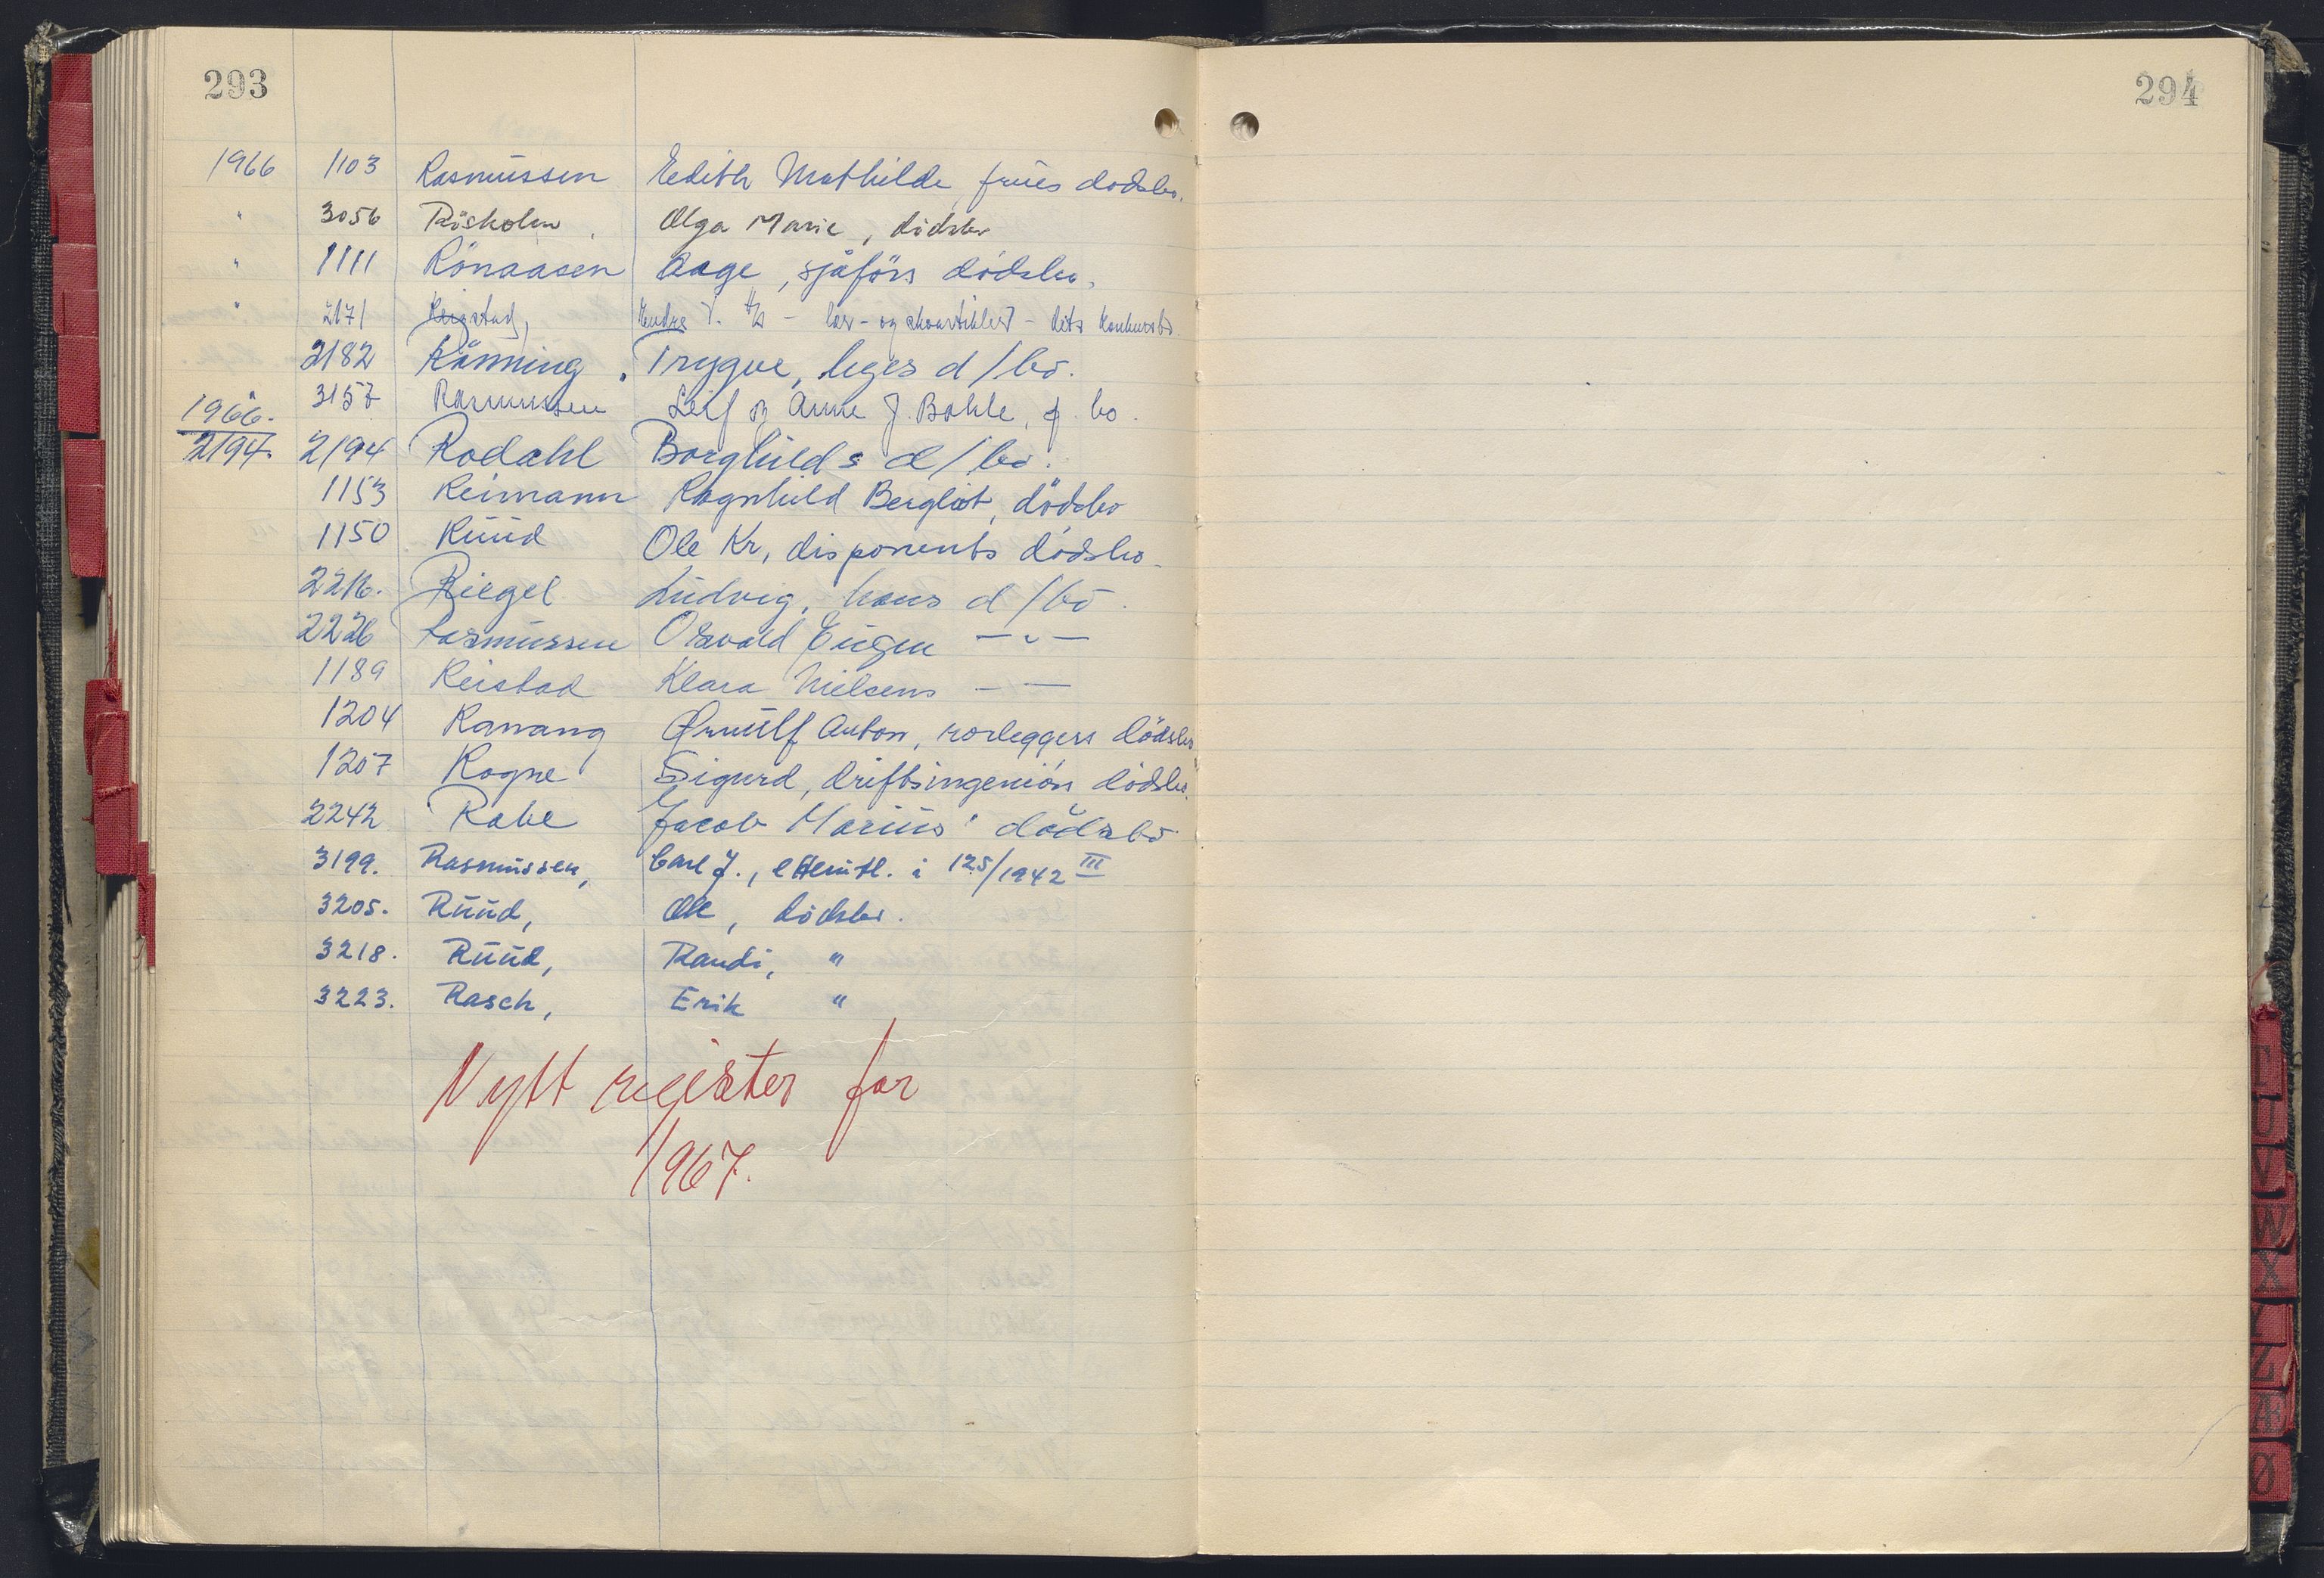 293
294
1966 1103 Rasmussen Edith Mathilde, frues dødsbo.
" 3056 Riisholm, Olga Marie, dødsbo
" 1111 Rönaasen Aage, sjåførs dødsbo.
" 2171 Reigstad, Endre T. A/S - lær- og skoartikler - dets konkursbo
2182 Rönning, Trygve, leges d/bo.
1966. 3157 Rasmussen Leif og Anne J. Bohle, f. bo.
2194. 2194 Rodahl Borghilds d/bo.
1153 Reimann Ragnhild Bergliot, dødsbo
1150 Ruud Ole Kr, disponents dødsbo
2216. Riegel Ludvig, hans d/bo.
2226 Rasmussen Osvald Eugen — " —
1189 Reistad Klara Nielsens — —
1204 Ranang Ørnulf Anton, rørleggers dødsbo
1207 Rogne Sigurd, driftsingeniørs dødsbo.
2242 Rabe Jacob Marius' dødsbo
3199. Rasmussen, Carl J., etterutl. i 125/1942 III
3205. Ruud, Ole, dødsbo.
3218. Ruud, Randi, "
3223. Rasch, Erik "
Nytt register for
1967.
T
U
V
W
X
Y
Z
Æ
Ø